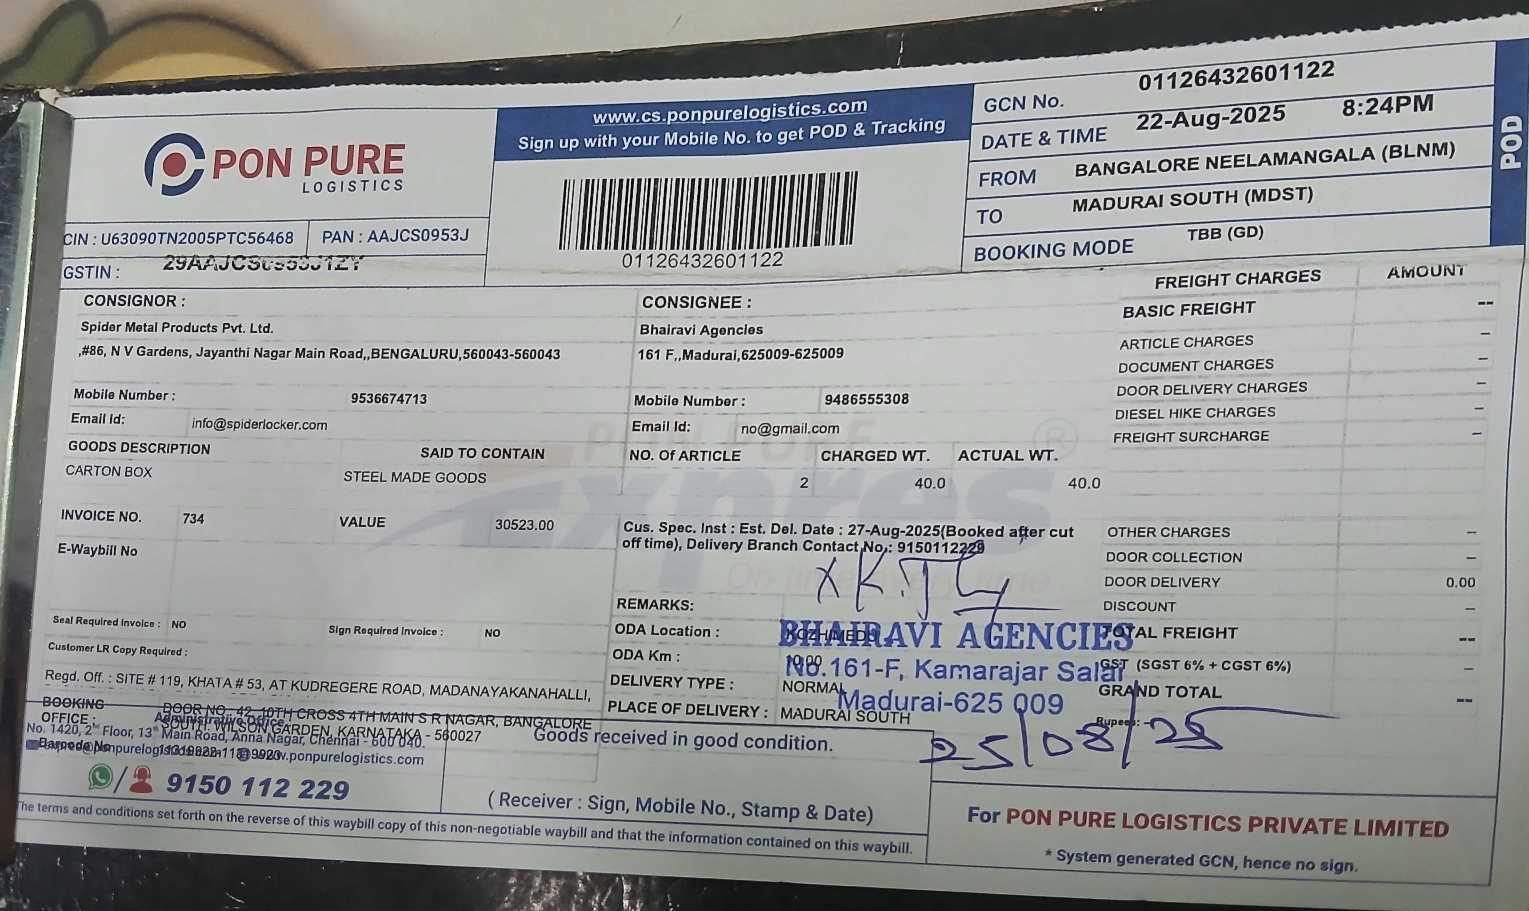 PON PURE
LOGISTICS
www.cs.ponpurelogistics.com
Sign up with your Mobile No. to get POD & Tracking
01126432601122
GCN No. 01126432601122
DATE & TIME 22-Aug-2025 8:24PM
FROM BANGALORE NEELAMANGALA (BLNM)
TO MADURAI SOUTH (MDST)
BOOKING MODE TBB (GD)
POD
CIN : U63090TN2005PTC56468 PAN : AAJCS0953J
GSTIN : 29AAJCS0953J1ZY
CONSIGNOR :
Spider Metal Products Pvt. Ltd.
,#86, N V Gardens, Jayanthi Nagar Main Road,,BENGALURU,560043-560043
Mobile Number : 9536674713
Email Id: info@spiderlocker.com
CONSIGNEE :
Bhairavi Agencies
161 F,,Madurai,625009-625009
Mobile Number : 9486555308
Email Id: no@gmail.com
GOODS DESCRIPTION SAID TO CONTAIN NO. Of ARTICLE CHARGED WT. ACTUAL WT.
CARTON BOX STEEL MADE GOODS 2 40.0 40.0
INVOICE NO. 734 VALUE 30523.00
E-Waybill No
Cus. Spec. Inst : Est. Del. Date : 27-Aug-2025(Booked after cut
off time), Delivery Branch Contact No.: 9150112229
PON PURE ®
Xpres
On time every time
Seal Required Invoice : NO Sign Required Invoice : NO
Customer LR Copy Required :
REMARKS:
ODA Location : KOZHIMEDU
ODA Km : 10.00
DELIVERY TYPE : NORMAL
PLACE OF DELIVERY : MADURAI SOUTH
BHAIRAVI AGENCIES
No.161-F, Kamarajar Salai
Madurai-625 009
25/08/25
Regd. Off. : SITE # 119, KHATA # 53, AT KUDREGERE ROAD, MADANAYAKANAHALLI,
BOOKING OFFICE : DOOR NO. 42, 10TH CROSS 4TH MAIN S R NAGAR, BANGALORE
SOUTH, WILSON GARDEN, KARNATAKA - 560027
Administrative Office
No. 1420, 2nd Floor, 13th Main Road, Anna Nagar, Chennai - 600 040.
Barcode No
www.ponpurelogistics.com
9150 112 229
Goods received in good condition.
( Receiver : Sign, Mobile No., Stamp & Date)
The terms and conditions set forth on the reverse of this waybill copy of this non-negotiable waybill and that the information contained on this waybill.
FREIGHT CHARGES AMOUNT
BASIC FREIGHT --
ARTICLE CHARGES --
DOCUMENT CHARGES --
DOOR DELIVERY CHARGES --
DIESEL HIKE CHARGES --
FREIGHT SURCHARGE --
OTHER CHARGES --
DOOR COLLECTION --
DOOR DELIVERY 0.00
DISCOUNT --
TOTAL FREIGHT --
GST (SGST 6% + CGST 6%) --
GRAND TOTAL --
Rupees: --
For PON PURE LOGISTICS PRIVATE LIMITED
* System generated GCN, hence no sign.